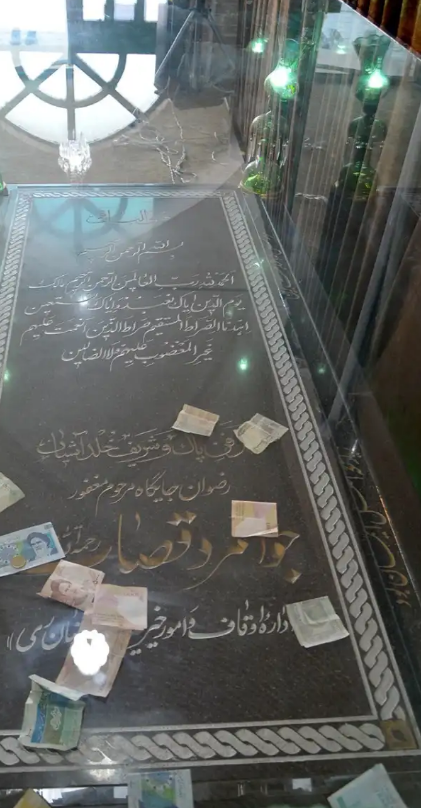 بسم الله الرحمن الرحیم
الحمد لله رب العالمین الرحمن الرحیم مالک
یوم الدین ایاک نعبد و ایاک نستعین
اهدنا الصراط المستقیم صراط الذین انعمت علیهم
غیر المغضوب علیهم ولا الضالین
پاک و شریف خلد آشیان
رضوان جایگاه مرحوم مغفور
جوانمرد قصاب رحمة
اداره اوقاف و امور خیریه ری